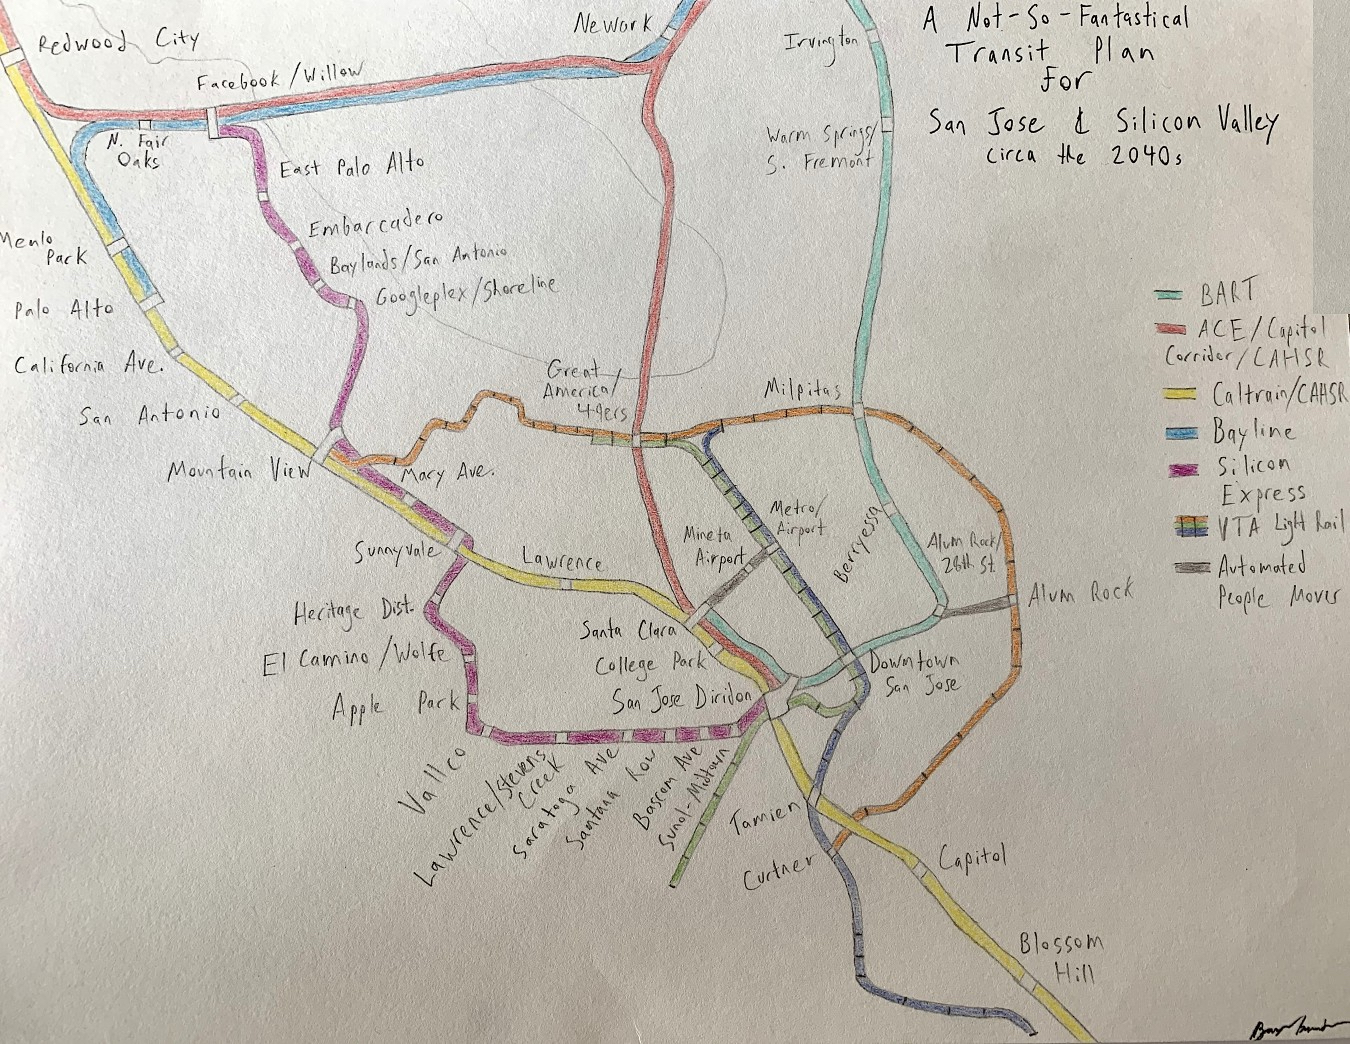 A Not-So-Fantastical
Transit Plan
For
San Jose & Silicon Valley
circa the 2040s
Redwood City
Facebook/Willow
Newark
Irvington
N. Fair
Oaks
East Palo Alto
Warm Springs/
S. Fremont
Menlo
Park
Embarcadero
Baylands/San Antonio
Googleplex/Shoreline
Palo Alto
California Ave.
San Antonio
Great
America/
49ers
Milpitas
Mountain View
Mary Ave.
Metro/
Airport
Mineta
Airport
Berryessa
Alum Rock/
28th St.
Alum Rock
Sunnyvale
Lawrence
Heritage Dist.
Santa Clara
El Camino/Wolfe
College Park
Downtown
San Jose
Apple Park
San Jose Diridon
Vallco
Lawrence/Stevens
Creek
Saratoga Ave
Santana Row
Bascom Ave
Sunol-Midtown
Tamien
Curtner
Capitol
Blossom
Hill
BART
ACE/Capitol
Corridor/CAHSR
Caltrain/CAHSR
Bayline
Silicon
Express
VTA Light Rail
Automated
People Mover